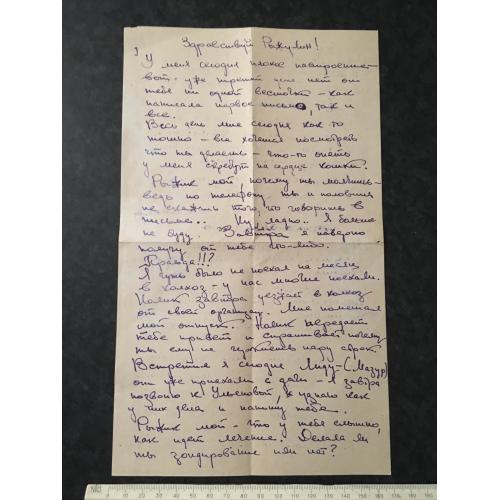 Здравствуй Рыжулин!
У меня сегодня плохое настроение
вот уже третий день нет от
тебя ни одной весточки - как
написала первое письмо, так и
все.
Весь день мне сегодня как-то
тошно - все хочется посмотреть
что ты делаешь - что-то опять
у меня скребут на сердце кошки.
Рыжик мой почему ты молчишь -
ведь по телефону ты и половины
не скажешь того, что говоришь в
письме... Ну ладно.. Я больше
не буду. Завтра я наверно
получу от тебя что-либо.
Правда!!?
Я чуть было не поехал на месяц
в колхоз - у нас многие поехали.
завтра уезжает в колхоз
от своей организ. Мне помешал
мой отпуск. передает
тебе привет и спрашивает почему
ты ему не черкнешь пару строк
Встретил я сегодня Лиду - (Мазур)
они уже приехали с дачи - Я завтра
позвоню к и узнаю как
у них дела и напишу тебе.
Рыжик мой - что у тебя слышно,
как идет лечение? Делала ли
ты зондирование или нет?